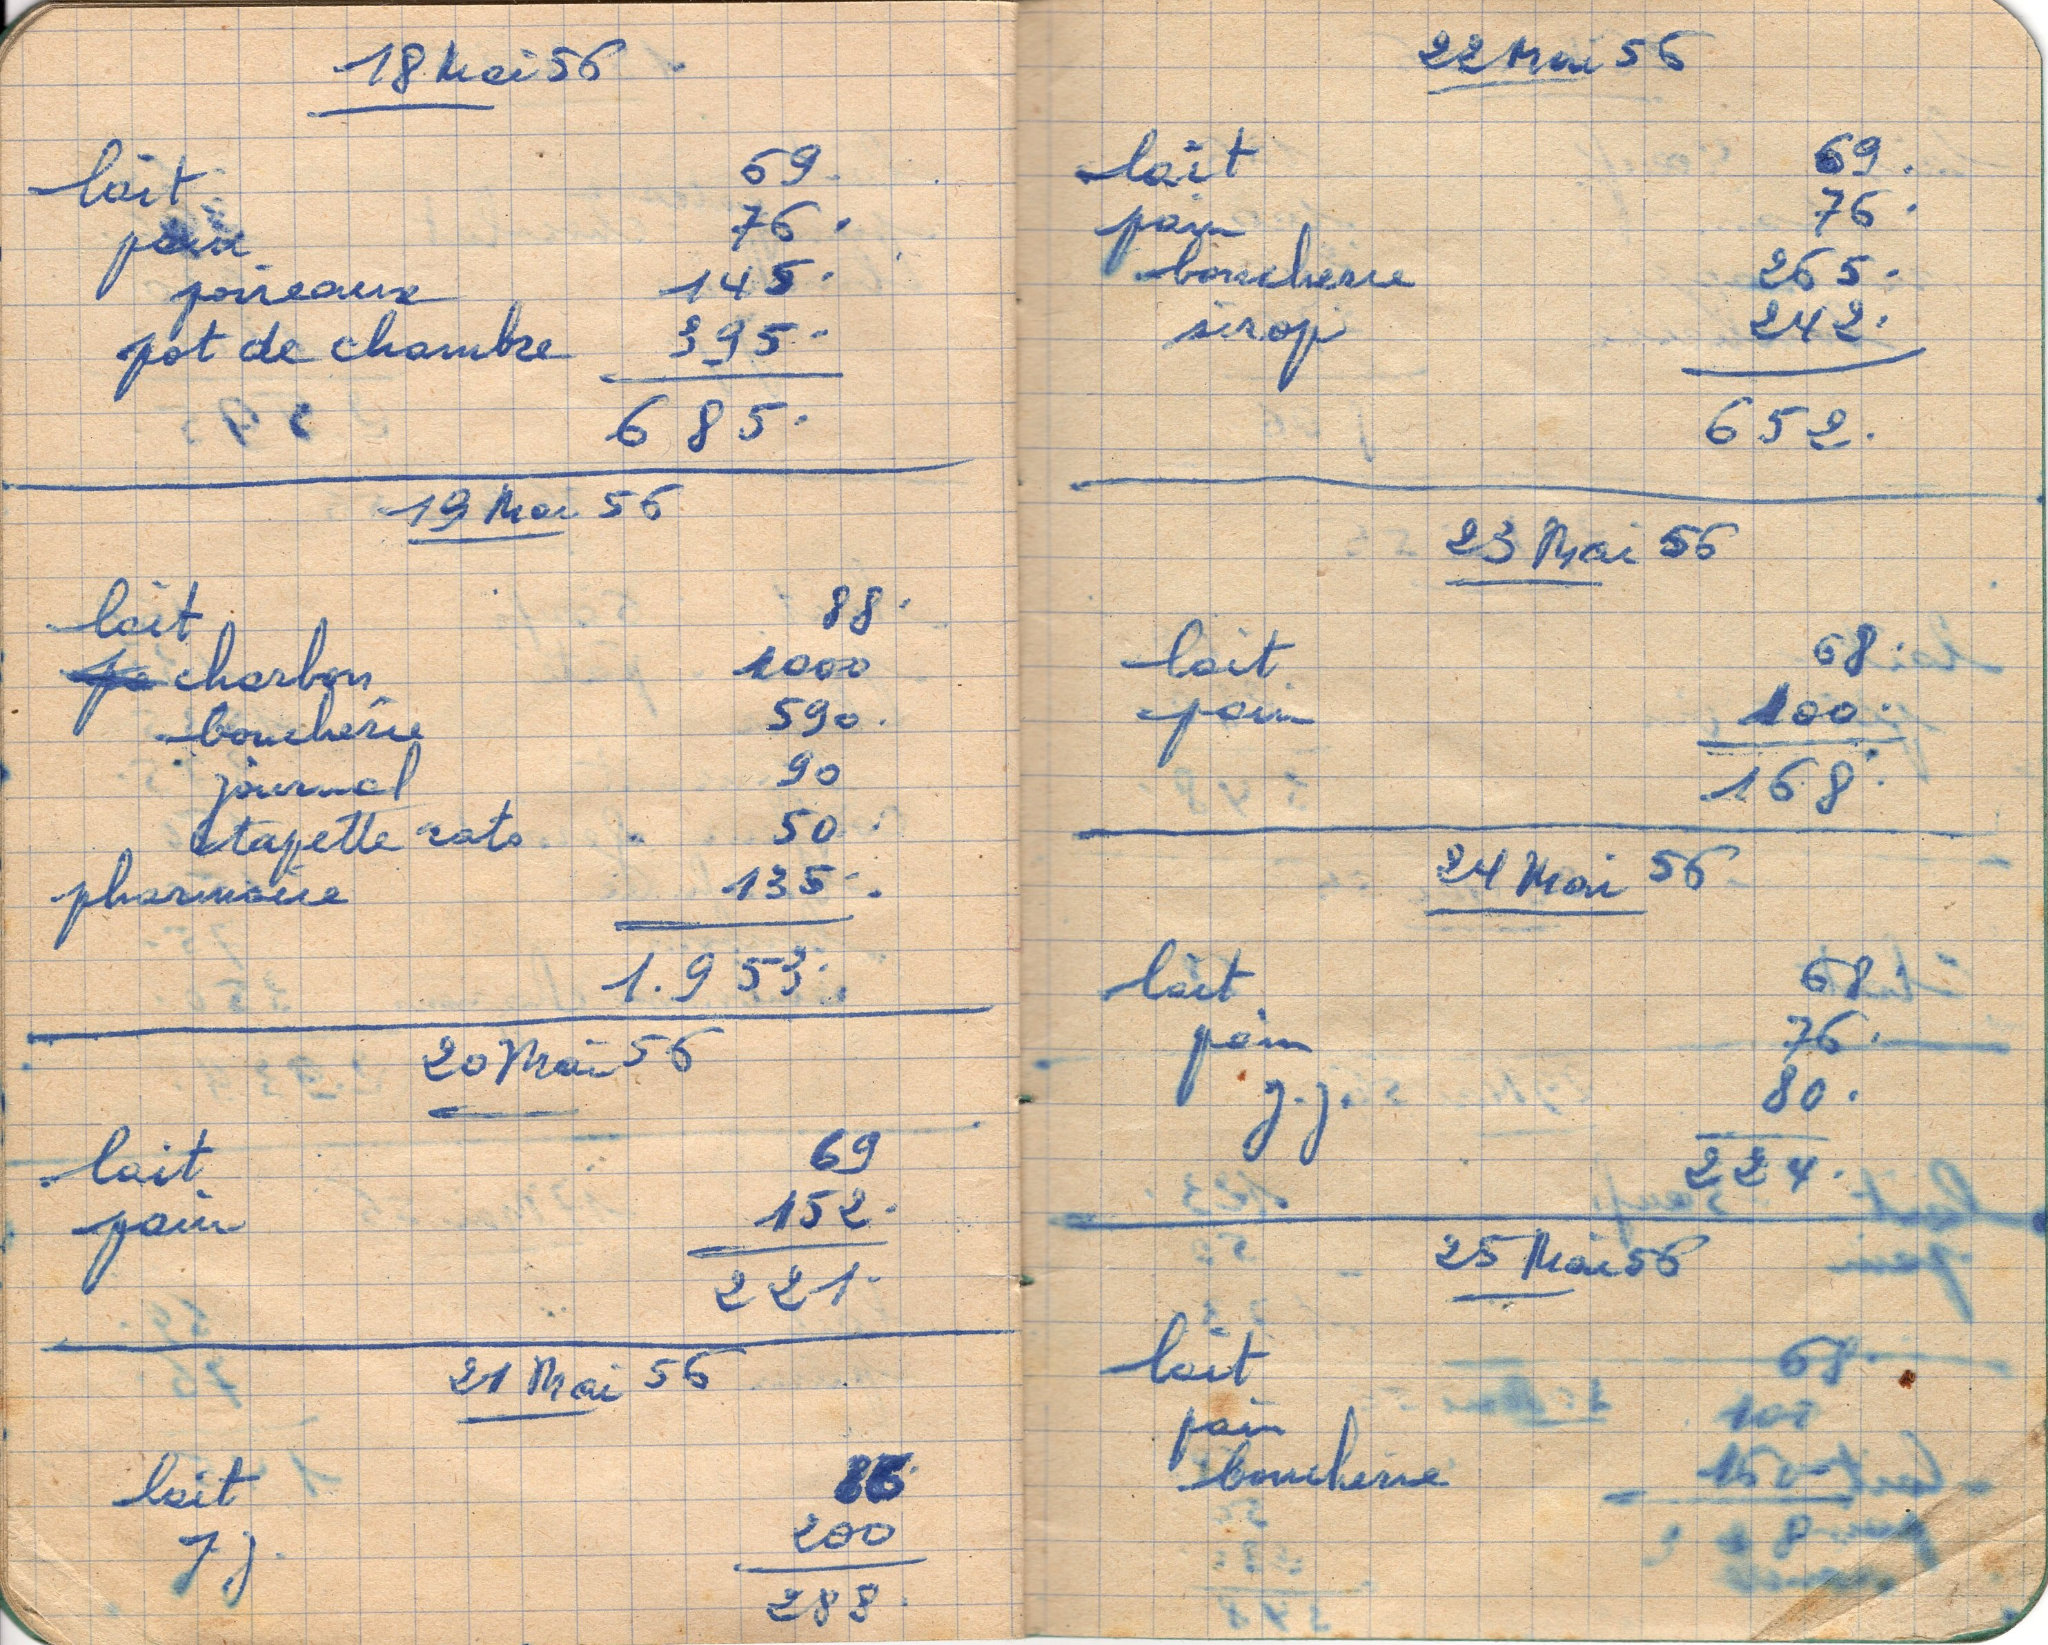 18 Mai 56
lait 69.
pain 76.
poireaux 145.
pot de chambre 395.
685.
19 Mai 56
lait 88.
charbon 1000
boucherie 590.
journal 90
tapette rats 50
pharmacie 135.
1.953.
20 Mai 56
lait 69
pain 152.
221.
21 Mai 56
lait
J.J. 200
288.
22 Mai 56
lait 69.
pain 76.
boucherie 265.
sirop 242.
652.
23 Mai 56
lait 68.
pain 100.
168.
24 Mai 56
lait 68.
pain 76.
J.J. 80.
224.
25 Mai 56
lait 68.
pain
boucherie